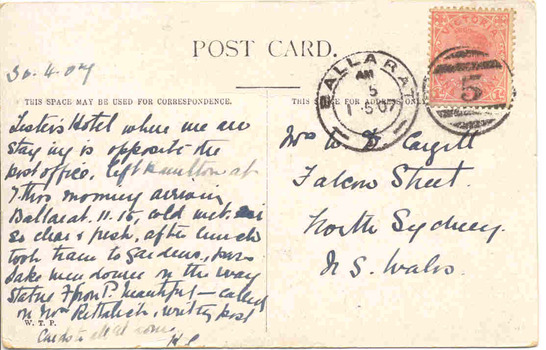 POST CARD.
30.4.07
THIS SPACE MAY BE USED FOR CORRESPONDENCE.
Lester's Hotel where we are
staying is opposite the
post office, left Hamilton at
7 this morning arriving
Ballarat 11.15, cold wet
so clear & fresh, after lunch
took tram to Gardens,
Lake on the way
Statue beautiful - called
on Mrs writing post
W. T. P.
Cards
H C
VICTORIA
BALLARAT
AM
5
1 5 07
5
THIS SPACE FOR ADDRESS ONLY
Mrs W D Cargill
Falcon Street.
North Sydney.
N S. Wales.